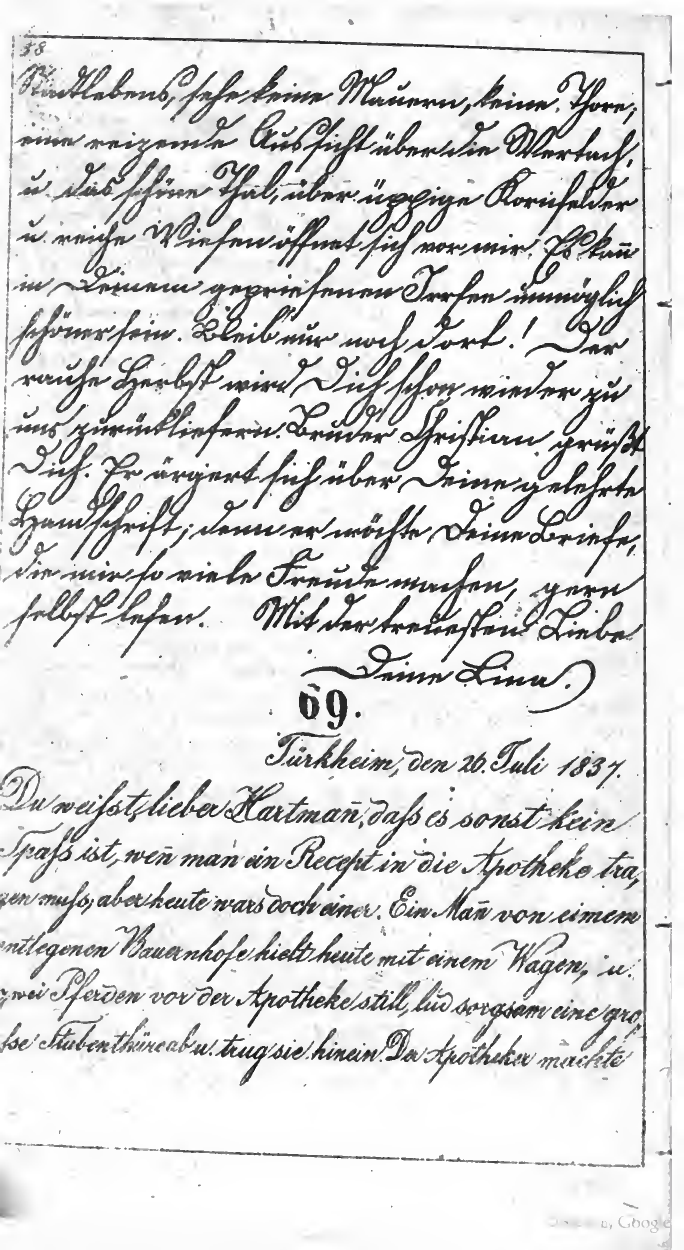 58
Stadtlebens, sehe keine Mauern, keine Thore,
eine reizende Aussicht über die Wertach,
u. das schöne Thal, über üppige Kornfelder
u. reiche Wiesen öffnet sich vor mir. Es kañ
in Deinem gepriesenen Irrsee unmöglich
schöner sein. Bleib nur noch dort! Der
rauhe Herbst wird Dich schon wieder zu
uns zurückliefern. Bruder Christian grüßt
Dich. Er ärgert sich über Deine gelehrte
Handschrift; denn er möchte Deine Briefe,
die mir so viele Freude machen, gern
selbst lesen. Mit der treuesten Liebe
Deine Lina.
69.
Türkheim, den 26. Juli 1837.
Du weißst, lieber Hartmañ, daß es sonst kein
Spaß ist, weñ man ein Recept in die Apotheke tra,
gen muß, aber heute wars doch einer. Ein Mañ von einem
entlegenen Bauernhofe hielt heute mit einem Wagen, u.
zwei Pferden vor der Apotheke still, lud sorgsam eine gro,
ße Stubenthüre ab u. trug sie hinein. Der Apotheker machte